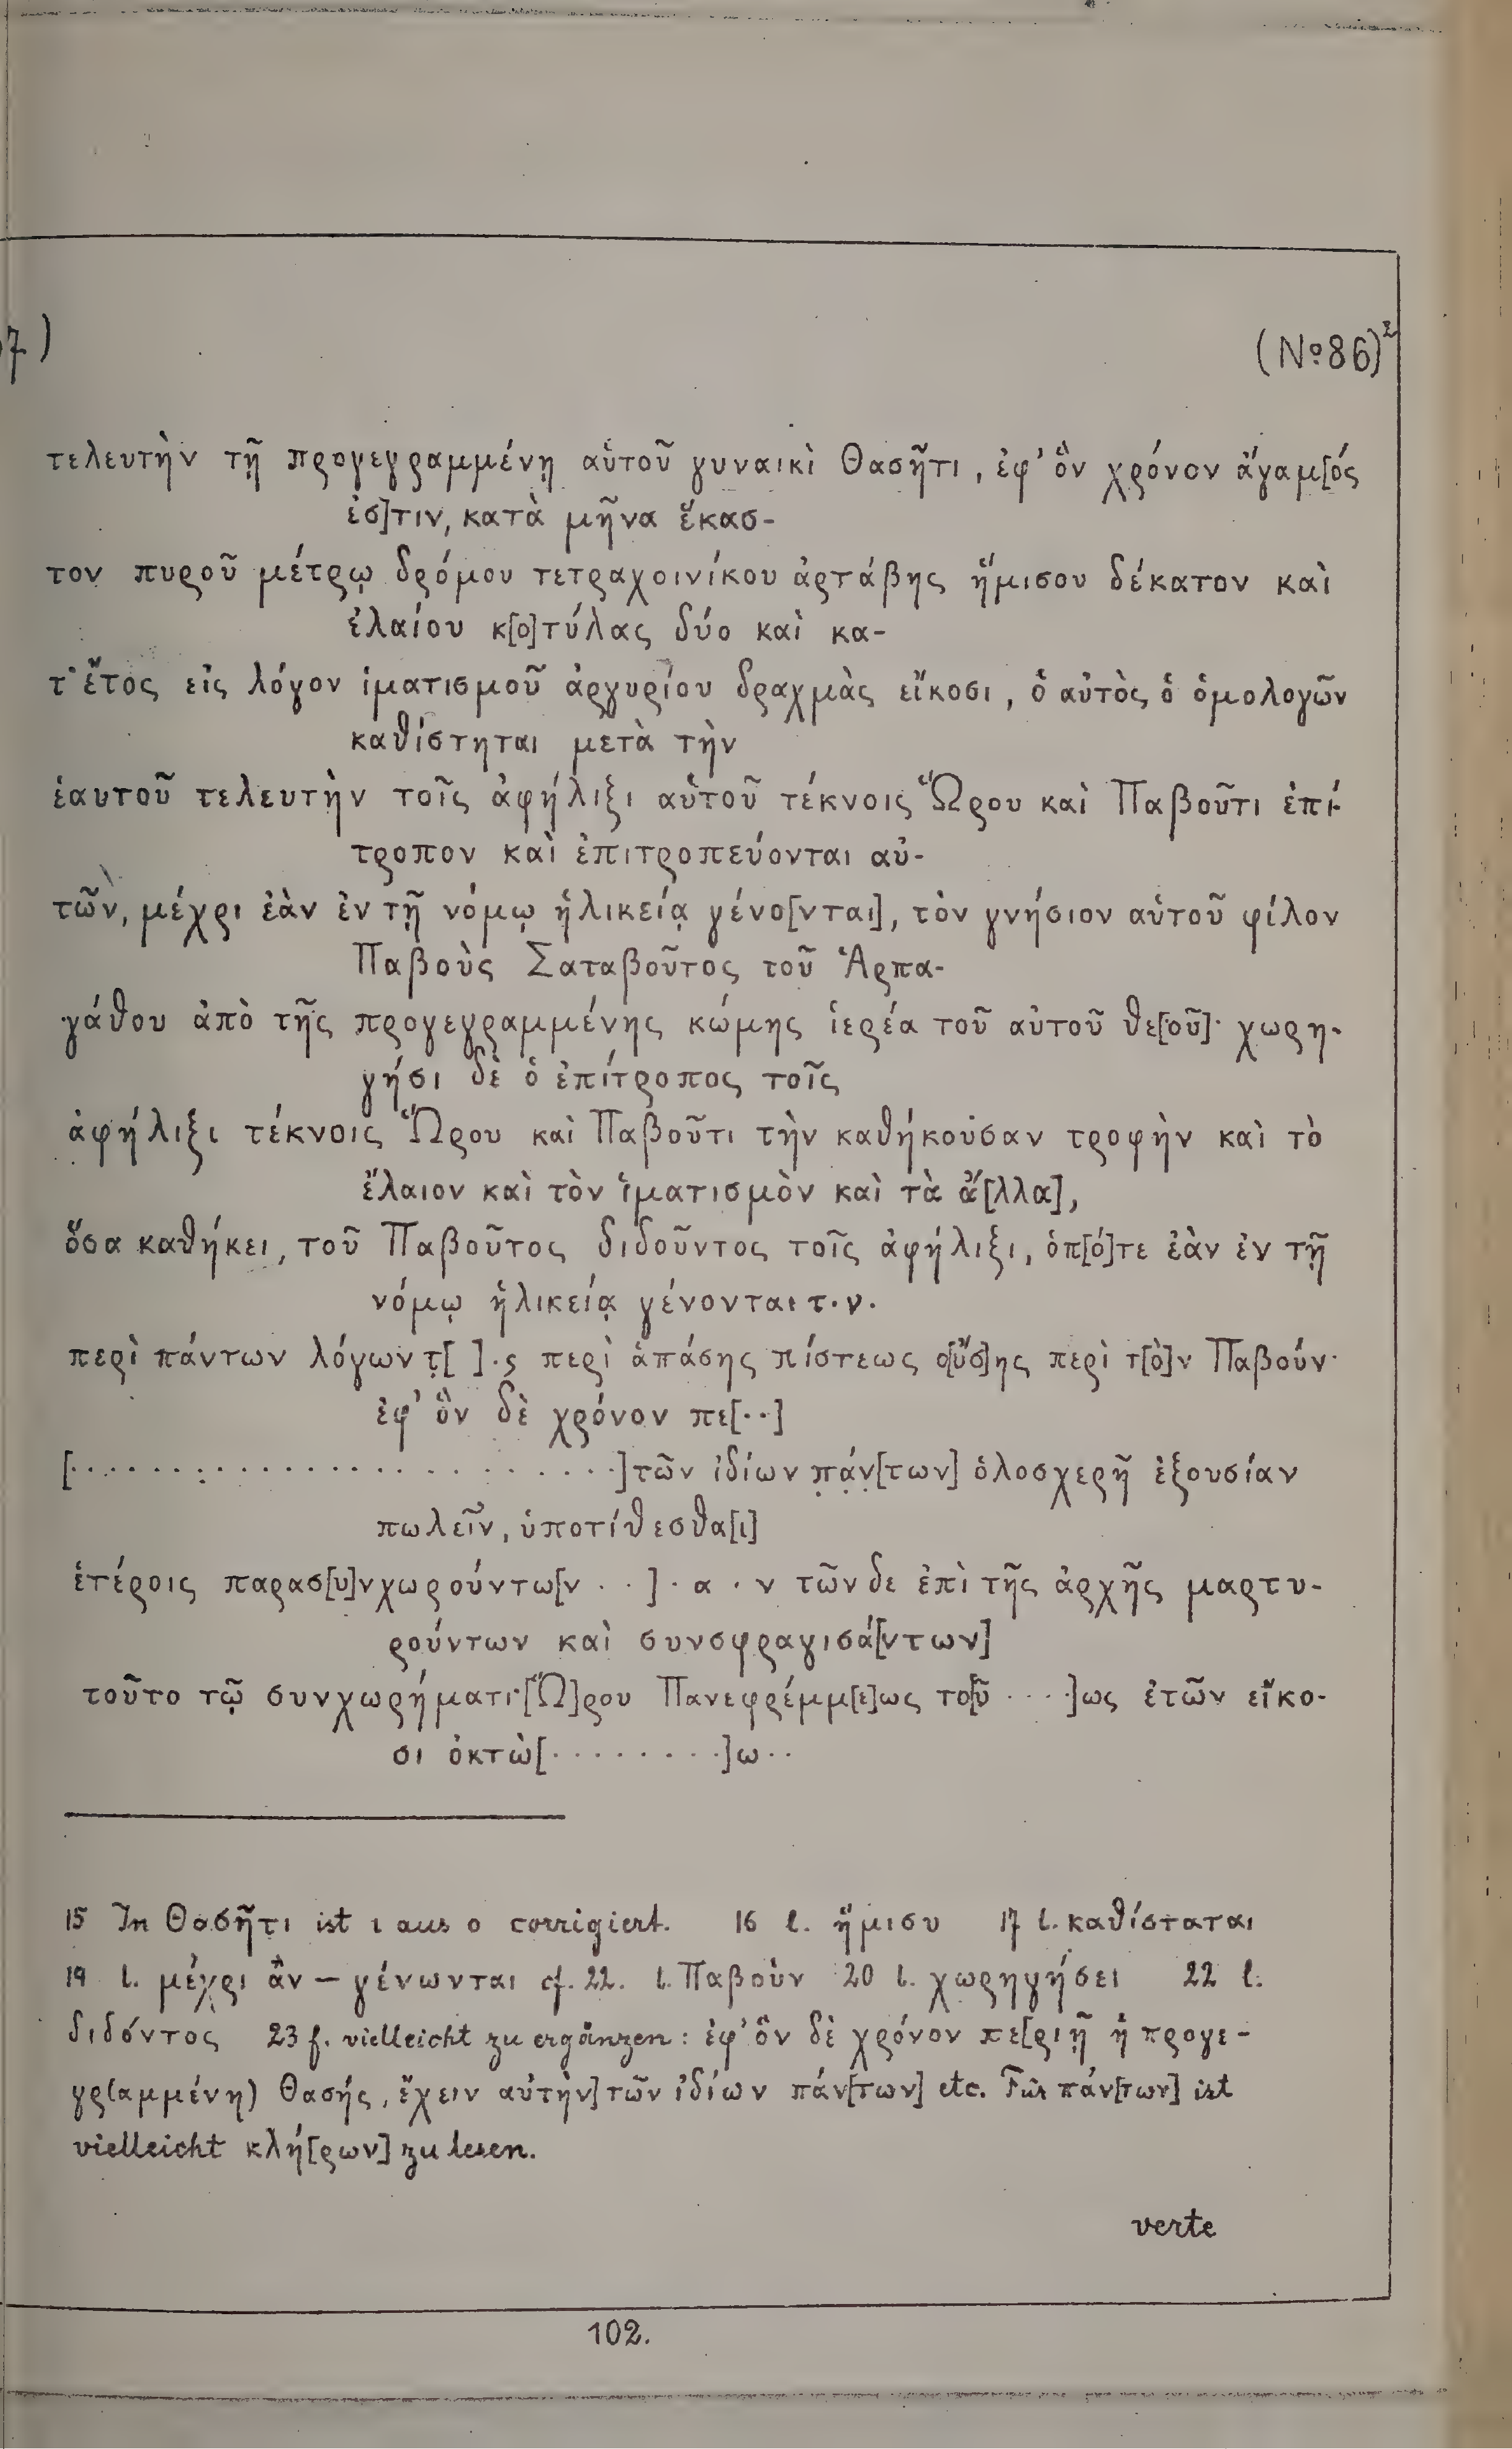 7)
(No 86)²
τελευτὴν τῇ προγεγραμμένῃ αὑτοῦ γυναικὶ Θασῆτι, ἐφ' ὃν χρόνον ἄγαμ[ός
ἐσ]τιν, κατὰ μῆνα ἕκασ-
τον πυροῦ μέτρῳ δρόμου τετραχοινίκου ἀρτάβης ἥμισου δέκατον καὶ
ἐλαίου κ[ο]τύλας δύο καὶ κα-
τ' ἔτος εἰς λόγον ἱματισμοῦ ἀργυρίου δραχμὰς εἴκοσι, ὁ αὐτὸς ὁ ὁμολογῶν
καθίστηται μετὰ τὴν
ἑαυτοῦ τελευτὴν τοῖς ἀφήλιξι αὑτοῦ τέκνοις Ὥρου καὶ Παβοῦτι ἐπί-
τροπον καὶ ἐπιτροπεύονται αὐ-
τῶν, μέχρι ἐὰν ἐν τῇ νόμῳ ἡλικείᾳ γένο[νται], τὸν γνήσιον αὑτοῦ φίλον
Παβοὺς Σαταβοῦτος τοῦ Ἁρπα-
γάθου ἀπὸ τῆς προγεγραμμένης κώμης ἱερέα τοῦ αὐτοῦ θε[οῦ]· χωρη-
γήσι δὲ ὁ ἐπίτροπος τοῖς
ἀφήλιξι τέκνοις Ὥρου καὶ Παβοῦτι τὴν καθήκουσαν τροφὴν καὶ τὸ
ἔλαιον καὶ τὸν ἱματισμὸν καὶ τὰ ἄ[λλα],
ὅσα καθήκει, τοῦ Παβοῦτος διδοῦντος τοῖς ἀφήλιξι, ὁπ[ό]τε ἐὰν ἐν τῇ
νόμῳ ἡλικείᾳ γένονται τ·ν·
περὶ πάντων λόγων τ̣[ ]·ς περὶ ἁπάσης πίστεως ο[ὔσ]ης περὶ τ[ὸ]ν Παβούν·
ἐφ' ὃν δὲ χρόνον πε[··]
[·························]τῶν ἰδίων π̣ά̣ν̣[των] ὁλοσχερῆ ἐξουσίαν
πωλεῖν, ὑποτίθεσθα[ι]
ἑτέροις παρασ[υ]νχωρούντω[ν · · ]·α·ν τῶνδε ἐπὶ τῆς ἀρχῆς μαρτυ-
ρούντων καὶ συνσφραγισά[ντων]
τοῦτο τῷ συνχωρήματι·[Ὥ]ρου Πανεφρέμμ[ε]ως το[ῦ ····]ως ἐτῶν εἴκο-
σι ὀκτὼ[········]ω··
15 In Θασῆτι ist ι aus ο corrigiert. 16 l. ἥμισυ 17 l. καθίσταται
19 l. μέχρι ἂν – γένωνται cf. 22. l. Παβοὺν 20 l. χωρηγήσει 22 l.
διδόντος 23 f. vielleicht zu ergänzen: ἐφ' ὃν δὲ χρόνον πε[ριῇ ἡ προγε-
γρ(αμμένη) Θασής, ἔχειν αὐτὴν] τῶν ἰδίων πάν[των] etc. Für πάν[των] ist
vielleicht κλή[ρων] zu lesen.
verte
102.